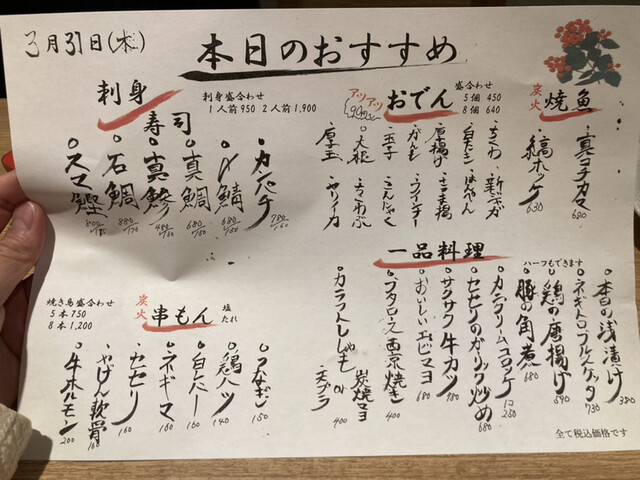 3月31日(木)
本日のおすすめ
刺身
寿司
刺身盛合わせ
1人前 950 2人前 1,900
○カンパチ 780/160
○〆鯖 680/150
○真鯛 680/150
○真鯵 480/130
○石鯛 880/170
○スマ鰹
アツアツ
おでん
盛合わせ
5個 450
8個 640
・ちくわ
・新ジャガ
・白たき
・はんぺん
・厚揚げ
・ごま揚
・がんも
・ウインナー
・玉子
・こんにゃく
○大根
・ちくわぶ
・厚玉
・ヤリイカ
炭火
焼魚
・真コチカマ 680
・縞ホッケ 630
一品料理
ハーフもできます
○本日の浅漬け 380
○ネギトロブルスケッタ 730
○鶏の唐揚げ 590
○豚の角煮 680
○カニクリームコロッケ 1コ 250
○セセリのガーリック炒め 680
○サクサク牛カツ 780
○おいしいエビマヨ
○ブタロース西京焼き 400
○カラフトししゃも 炭焼マヨ or 天プラ 400
焼き鳥盛合わせ
5本 750
8本 1,200
炭火
串もん
塩
たれ
○つなぎ 150
○鶏ハツ 140
○白レバー 160
○ネギマ 160
○セセリ 160
○やげん軟骨 160
○牛ホルモン 200
全て税込価格です